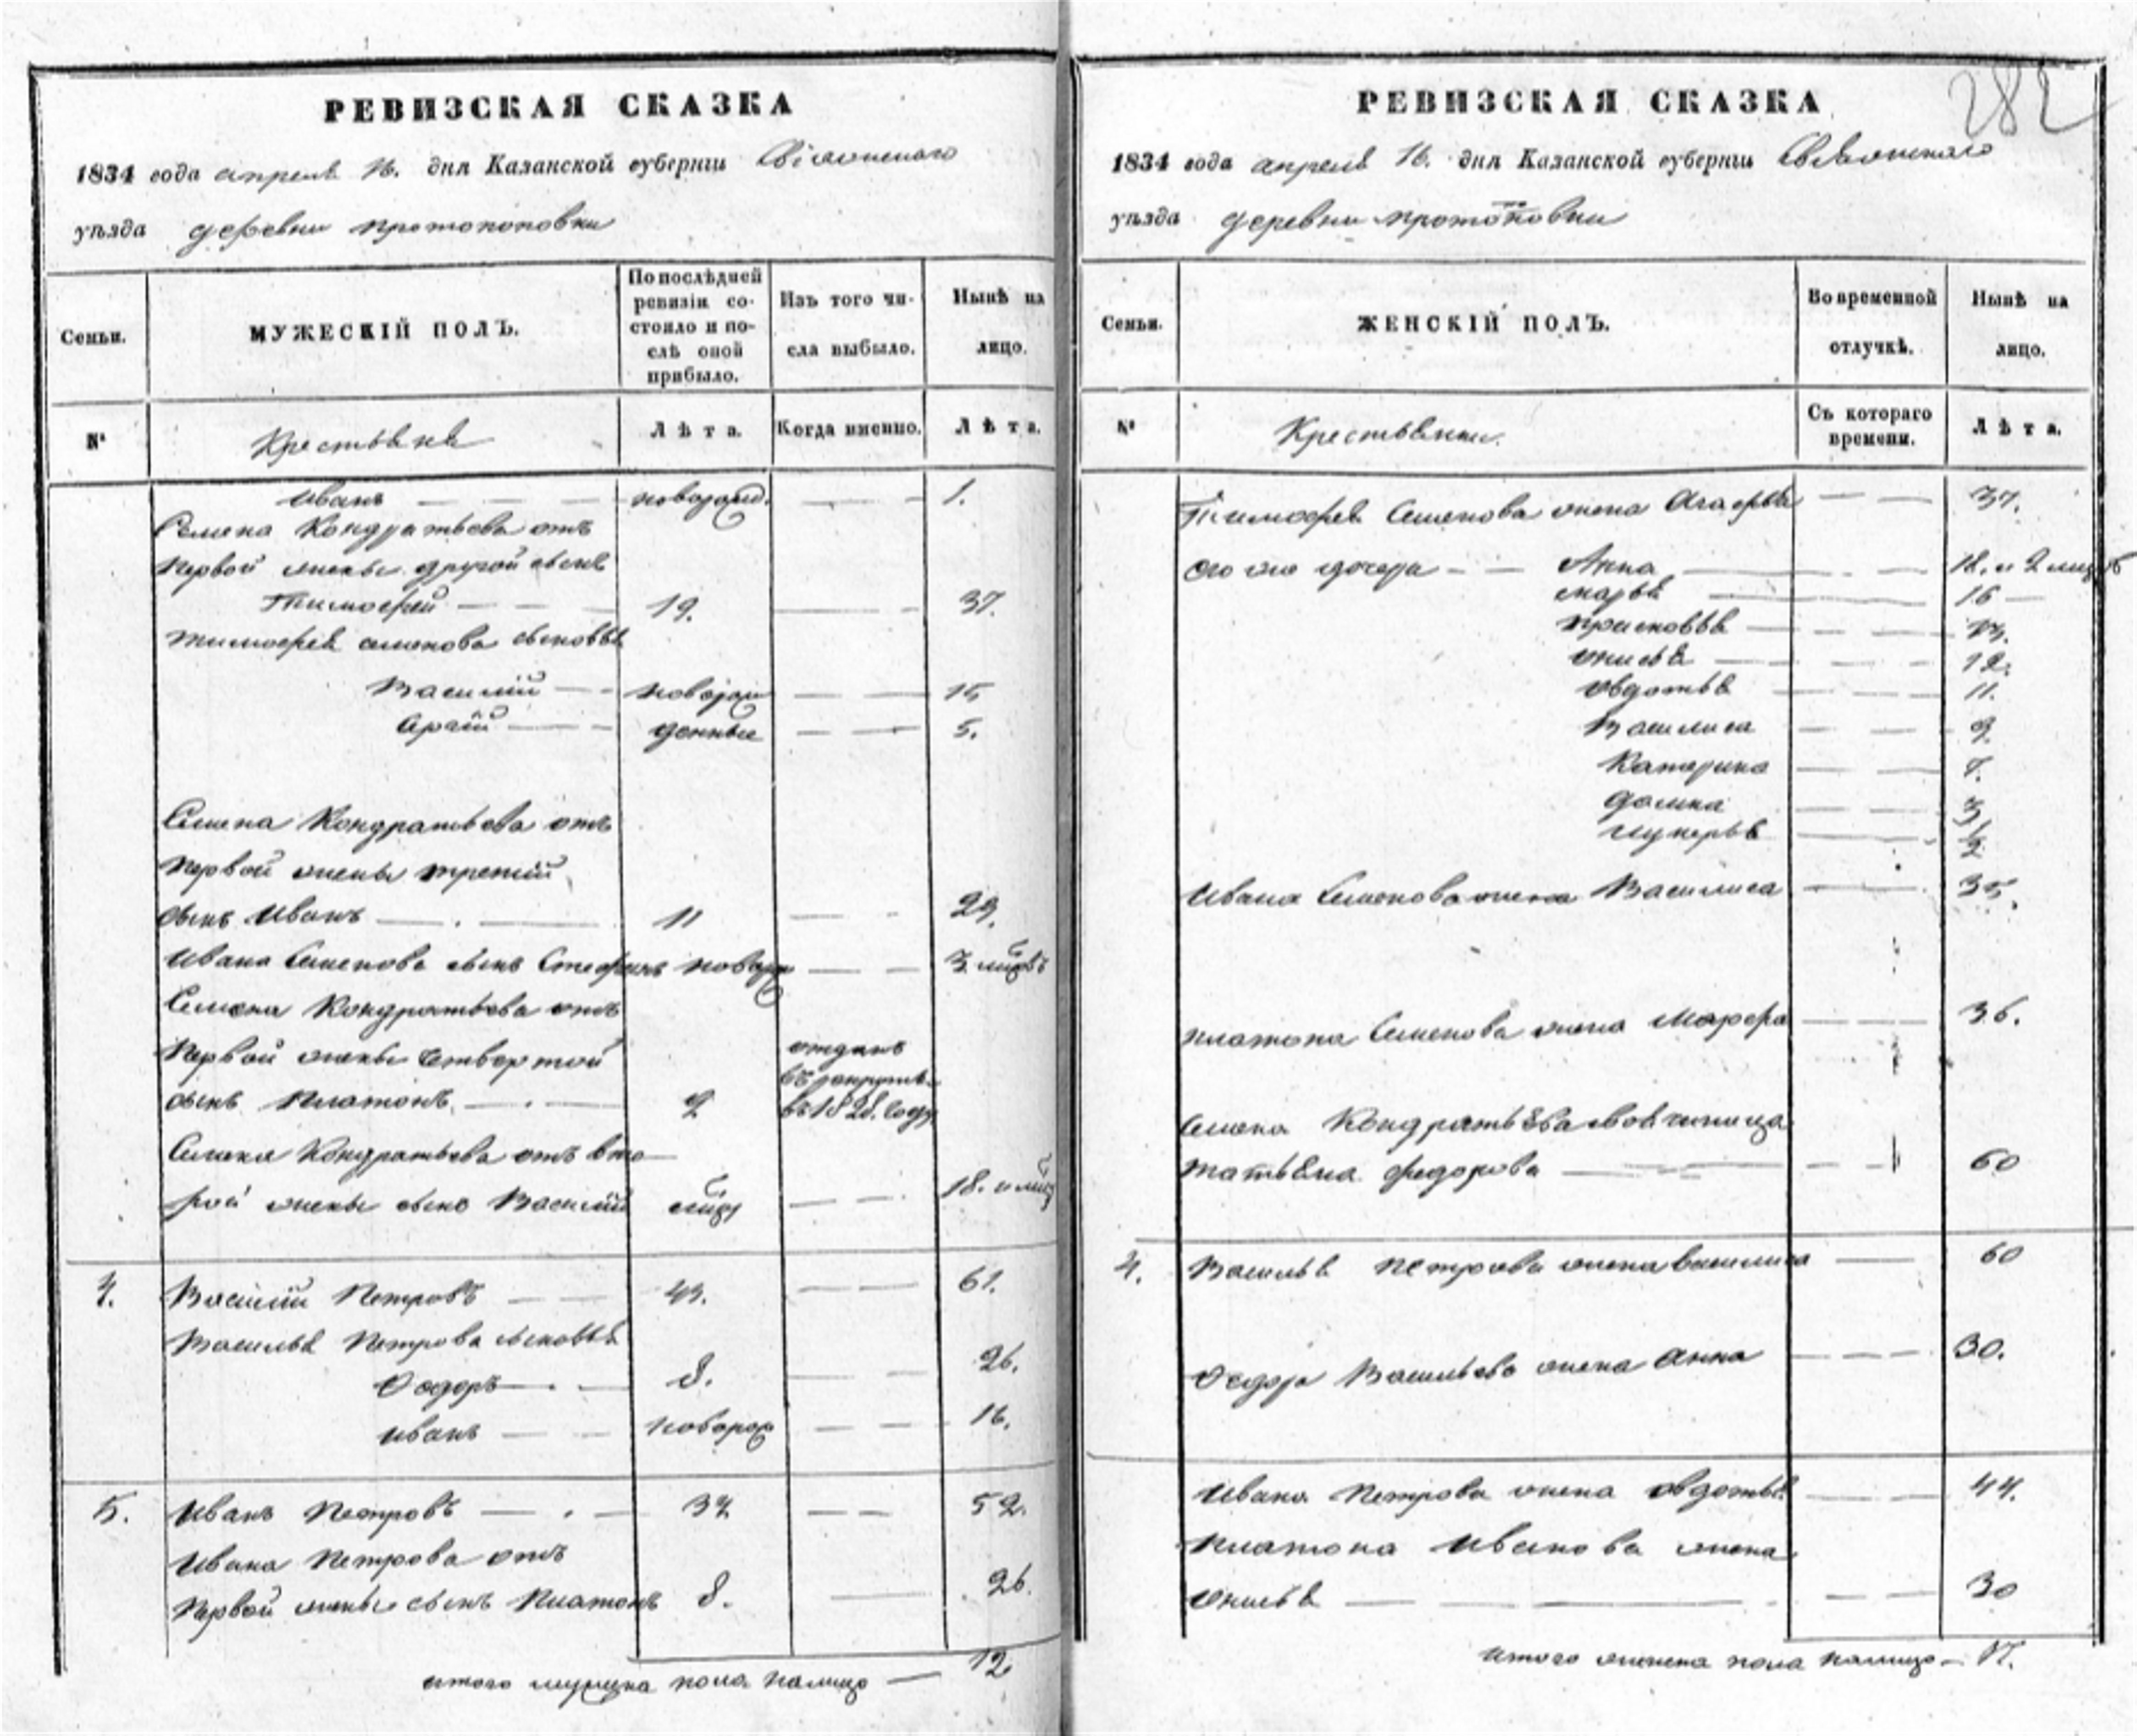 РЕВИЗСКАЯ СКАЗКА
1834 года апреля 16. дня Казанской губернiи Свiяжскаго
уѣзда деревни протопоповки
Семьи.
МУЖЕСКIЙ ПОЛЪ.
По послѣдней ревизiи со-
стояло и по-
слѣ оной
прибыло.
Изъ того чи-
сла выбыло.
Нынѣ на
лицо.
№
Крестьяне
Лѣта.
Когда именно.
Лѣта.
Иванъ новорожд. 1.
Семена Кондратьева отъ
первой жены другой сынъ
Тимофей 19. 37.
тимофея семенова сыновья
Василiй новорож 15
денные 5.
Семена Кондратьева отъ
первой жены третiй
сынъ Иванъ 11 29.
Ивана Семенова сынъ Стефанъ новорж 3 мцовъ
Семена Кондратьева отъ
первой жены четвертой
отданъ
въ рекруты
сынъ Платонъ 9 въ 1828. году
Семена Кондратьева отъ вто
рой жены сынъ Василiй мцу 18. и мцу
4. Василiй Петровъ 43. 61.
Василья Петрова сыновья
Ѳедоръ 8. 26.
иванъ новорож 16.
5. Иванъ Петровъ 34 52.
Ивана Петрова отъ
первой жены сынъ Платонъ 8. 26.
итого мужеска пола налицо 12
282
РЕВИЗСКАЯ СКАЗКА
1834 года апреля 16. дня Казанской губернiи Свiяжскаго
уѣзда деревни протопоповки
Семьи.
ЖЕНСКIЙ ПОЛЪ.
Во временной
отлучкѣ.
Нынѣ на
лицо.
№
Крестьянки.
Съ котораго
времени.
Лѣта.
Тимофея Семенова жена Агафья 37.
его же дочери Анна 18. и 2 мцовъ
марья 16
прасковья 13.
Онисья 12.
Овдотья 11.
Василиса 9
Катерина 7.
Домна 3
Лукерья 1/2
Ивана Семенова жена Василиса 35.
платона Семенова жена Марфа 36.
Семена Кондратьева своячиница
татьяна федорова 60
4. Василья Петрова жена василиса 60
Ѳедора Васильева жена Анна 30.
Ивана Петрова жена овдотья 44.
платона Иванова жена
Онисья 30
итого женска пола налицо 17.